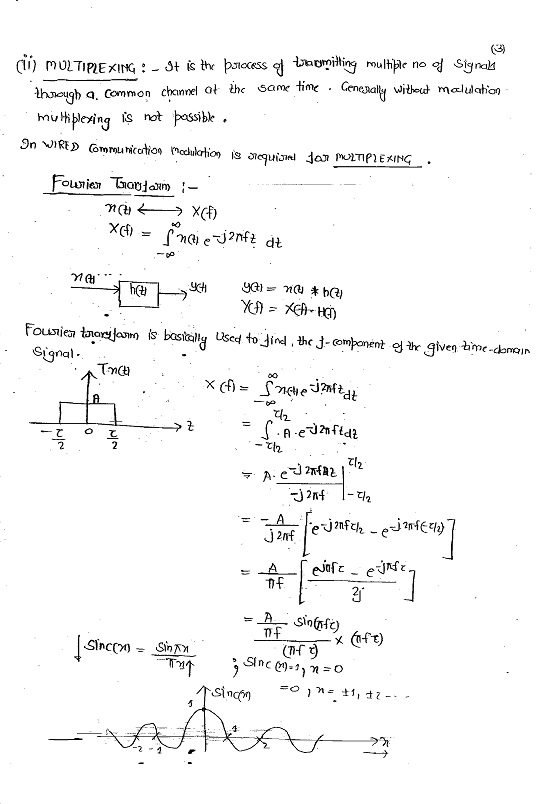 (3)
(ii) MULTIPLEXING : - It is the process of transmitting multiple no of signals
through a common channel at the same time. Generally without modulation
multiplexing is not possible.
In WIRED Communication modulation is required for MULTIPLEXING.
Fourier Transform :-
x(t) ⟷ X(f)
X(f) = ∫_{-∞}^{∞} x(t) e^{-j2πft} dt
x(t) → h(t) → y(t)
y(t) = x(t) * h(t)
Y(f) = X(f) · H(f)
Fourier transform is basically used to find, the f-component of the given time-domain
signal.
x(t)
A
-τ/2 0 τ/2 → t
X(f) = ∫_{-∞}^{∞} x(t) e^{-j2πft} dt
= ∫_{-τ/2}^{τ/2} A · e^{-j2πft} dt
= A · e^{-j2πft} / -j2πf |_{-τ/2}^{τ/2}
= -A / j2πf [e^{-j2πfτ/2} - e^{-j2πf(-τ/2)}]
= A / πf [e^{jπfτ} - e^{-jπfτ} / 2j]
= A / πf sin(πfτ) / (πfτ) × (πfτ)
↓ Sinc(x) = Sin πx / πx ↑ ; Sinc(x)=1, x=0
=0, x= ±1, ±2 ----
Sinc(x)
1
-2 -1 1 2 → x